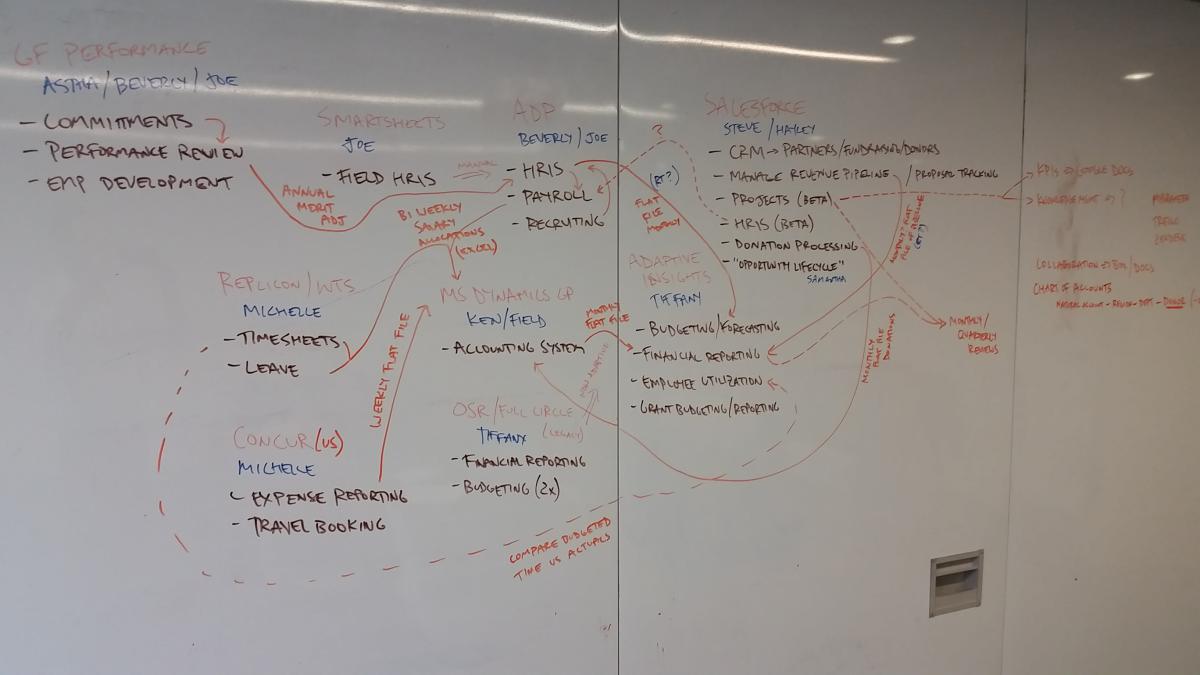 GF PERFORMANCE
ASTHA/BEVERLY/JOE
- COMMITMENTS
- PERFORMANCE REVIEW
- EMP DEVELOPMENT
ANNUAL
MERIT
ADJ
SMARTSHEETS
JOE
- FIELD HRIS
MANUAL
ADP
BEVERLY/JOE
- HRIS
- PAYROLL
- RECRUTING
BI WEEKLY
SALARY
ALLOCATIONS
(EXCEL)
SALESFORCE
STEVE/HAYLEY
- CRM → PARTNERS/FUNDRAISING/DONORS
- MANAGE REVENUE PIPELINE / PROPOSAL TRACKING
- PROJECTS (BETA)
- HRIS (BETA)
- DONATION PROCESSING
- "OPPORTUNITY LIFECYCLE"
SAMANTHA
?
(RT?)
FLAT
FILE
MONTHLY
MONTHLY FLAT
FILE OF PIPELINE
(RT?)
KPIS ⇔ GOOGLE DOCS
KNOWLEDGE MGMT ⇒ ?
COLLABORATION ⇒ BOX/DOCS
CHART OF ACCOUNTS
NATURAL ACCOUNT - REGION - DEPT - DONOR
REPLICON/WTS
MICHELLE
- TIMESHEETS
- LEAVE
WEEKLY FLAT FILE
MS DYNAMICS GP
KEN/FIELD
- ACCOUNTING SYSTEM
MONTHLY
FLAT FILE
ADAPTIVE
INSIGHTS
TIFFANY
- BUDGETING/FORECASTING
- FINANCIAL REPORTING
- EMPLOYEE UTILIZATION
- GRANT BUDGETING/REPORTING
MONTHLY
FLAT FILE
DONATIONS
MONTHLY/
QUARTERLY
REVIEWS
CONCUR (US)
MICHELLE
- EXPENSE REPORTING
- TRAVEL BOOKING
OSR/FULL CIRCLE
TIFFANY (LEGACY)
- FINANCIAL REPORTING
- BUDGETING (2X)
COMPARE BUDGETED
TIME VS ACTUALS